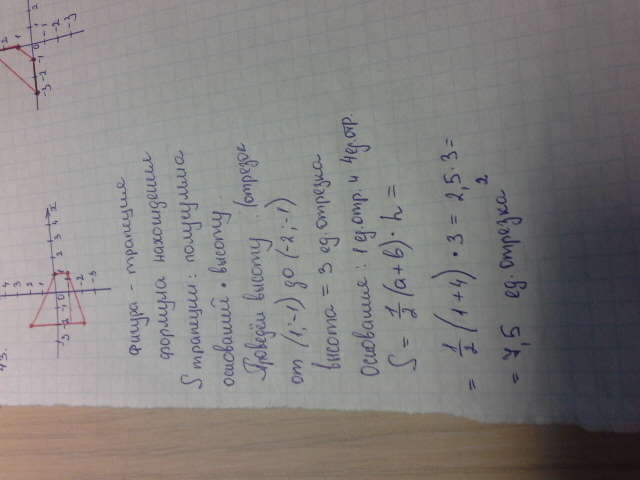 43.
4
3
2
1
-3 -2 -1 0 1 2 3 4 x
-1
-2
-3
2
1
-3 -2 -1 0 1 2 3
-1
-2
-3
Фигура - трапеция
формула нахождения
S трапеции: полусумма
оснований • высоту
Проведём высоту (отрезок
от (1;-1) до (-2;-1)
высота = 3 ед.отрезка
Основания: 1 ед.отр. и 4ед.отр.
S = 1/2 (a+b) · h =
= 1/2 (1+4) · 3 = 2,5·3=
= 7,5 ед.отрезка²